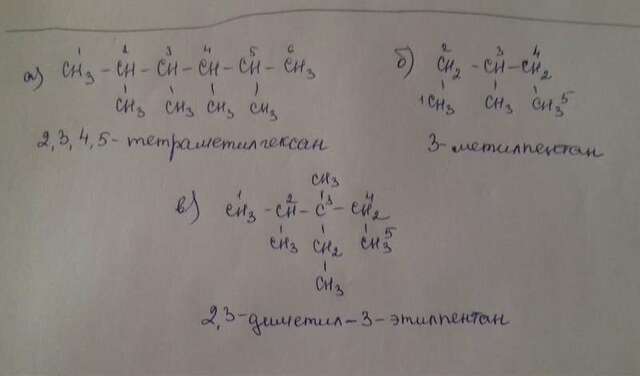 а) CH₃ - CH - CH - CH - CH - CH₃
1 2 3 4 5 6
CH₃ CH₃ CH₃ CH₃
2,3,4,5-тетраметилгексан
б) CH₂ - CH - CH₂
2 3 4
1CH₃ CH₃ CH₃5
3-метилпентан
CH₃
в) CH₃ - CH - C - CH₂
1 2 3 4
CH₃ CH₂ CH₃5
CH₃
2,3-диметил-3-этилпентан